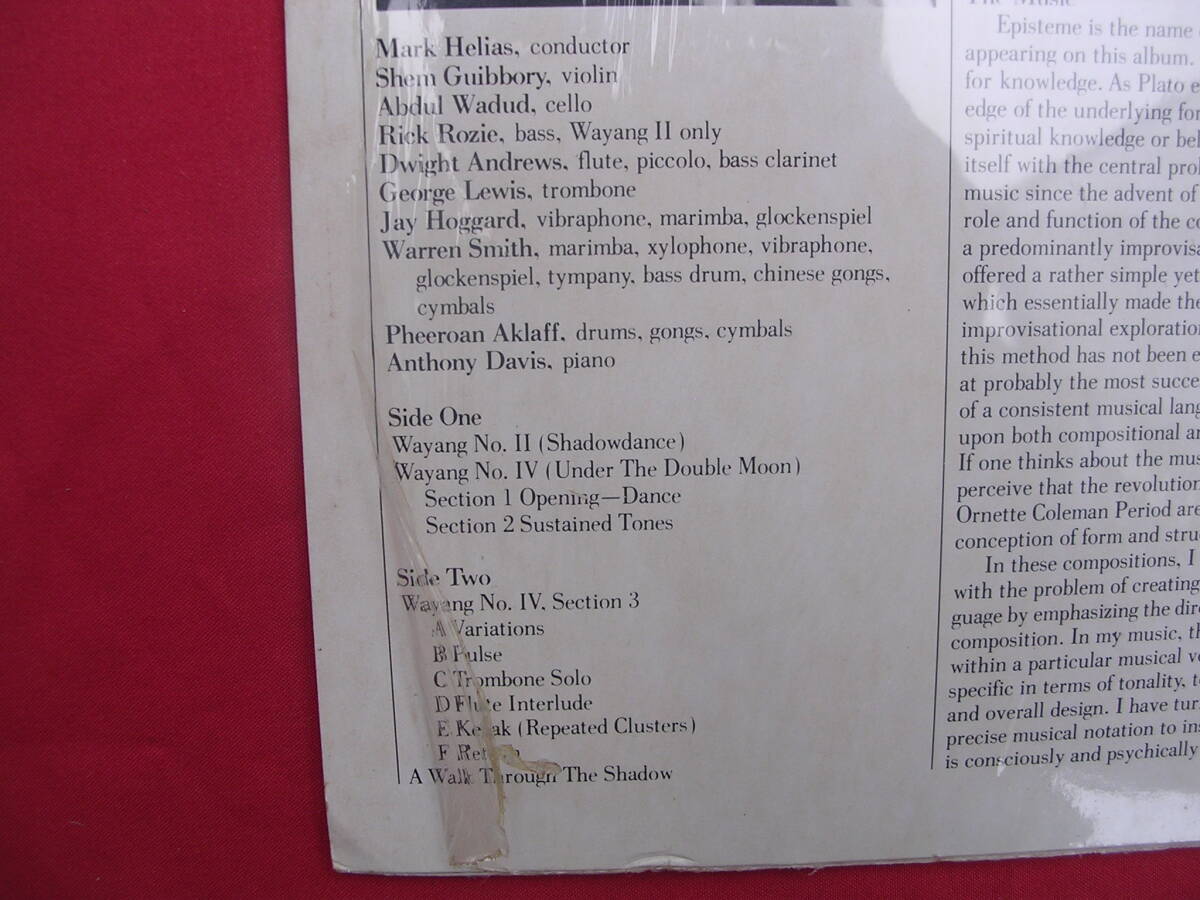 Mark Helias, conductor
Shem Guibbory, violin
Abdul Wadud, cello
Rick Rozie, bass, Wayang II only
Dwight Andrews, flute, piccolo, bass clarinet
George Lewis, trombone
Jay Hoggard, vibraphone, marimba, glockenspiel
Warren Smith, marimba, xylophone, vibraphone,
glockenspiel, tympany, bass drum, chinese gongs,
cymbals
Pheeroan Aklaff, drums, gongs, cymbals
Anthony Davis, piano
Side One
Wayang No. II (Shadowdance)
Wayang No. IV (Under The Double Moon)
Section 1 Opening—Dance
Section 2 Sustained Tones
Side Two
Wayang No. IV, Section 3
A Variations
B Pulse
C Trombone Solo
D Flute Interlude
E Kecak (Repeated Clusters)
F Return
A Walk Through The Shadow
The Music
Episteme is the name
appearing on this album.
for knowledge. As Plato
edge of the underlying
spiritual knowledge or
itself with the central
music since the advent of
role and function of the
a predominantly
offered a rather simple yet
which essentially made the
improvisational
this method has not been
at probably the most
of a consistent musical
upon both compositional
If one thinks about the
perceive that the
Ornette Coleman Period are
conception of form and
In these compositions, I
with the problem of creating
guage by emphasizing the
composition. In my music,
within a particular musical
specific in terms of tonality,
and overall design. I have
precise musical notation to
is consciously and psychically